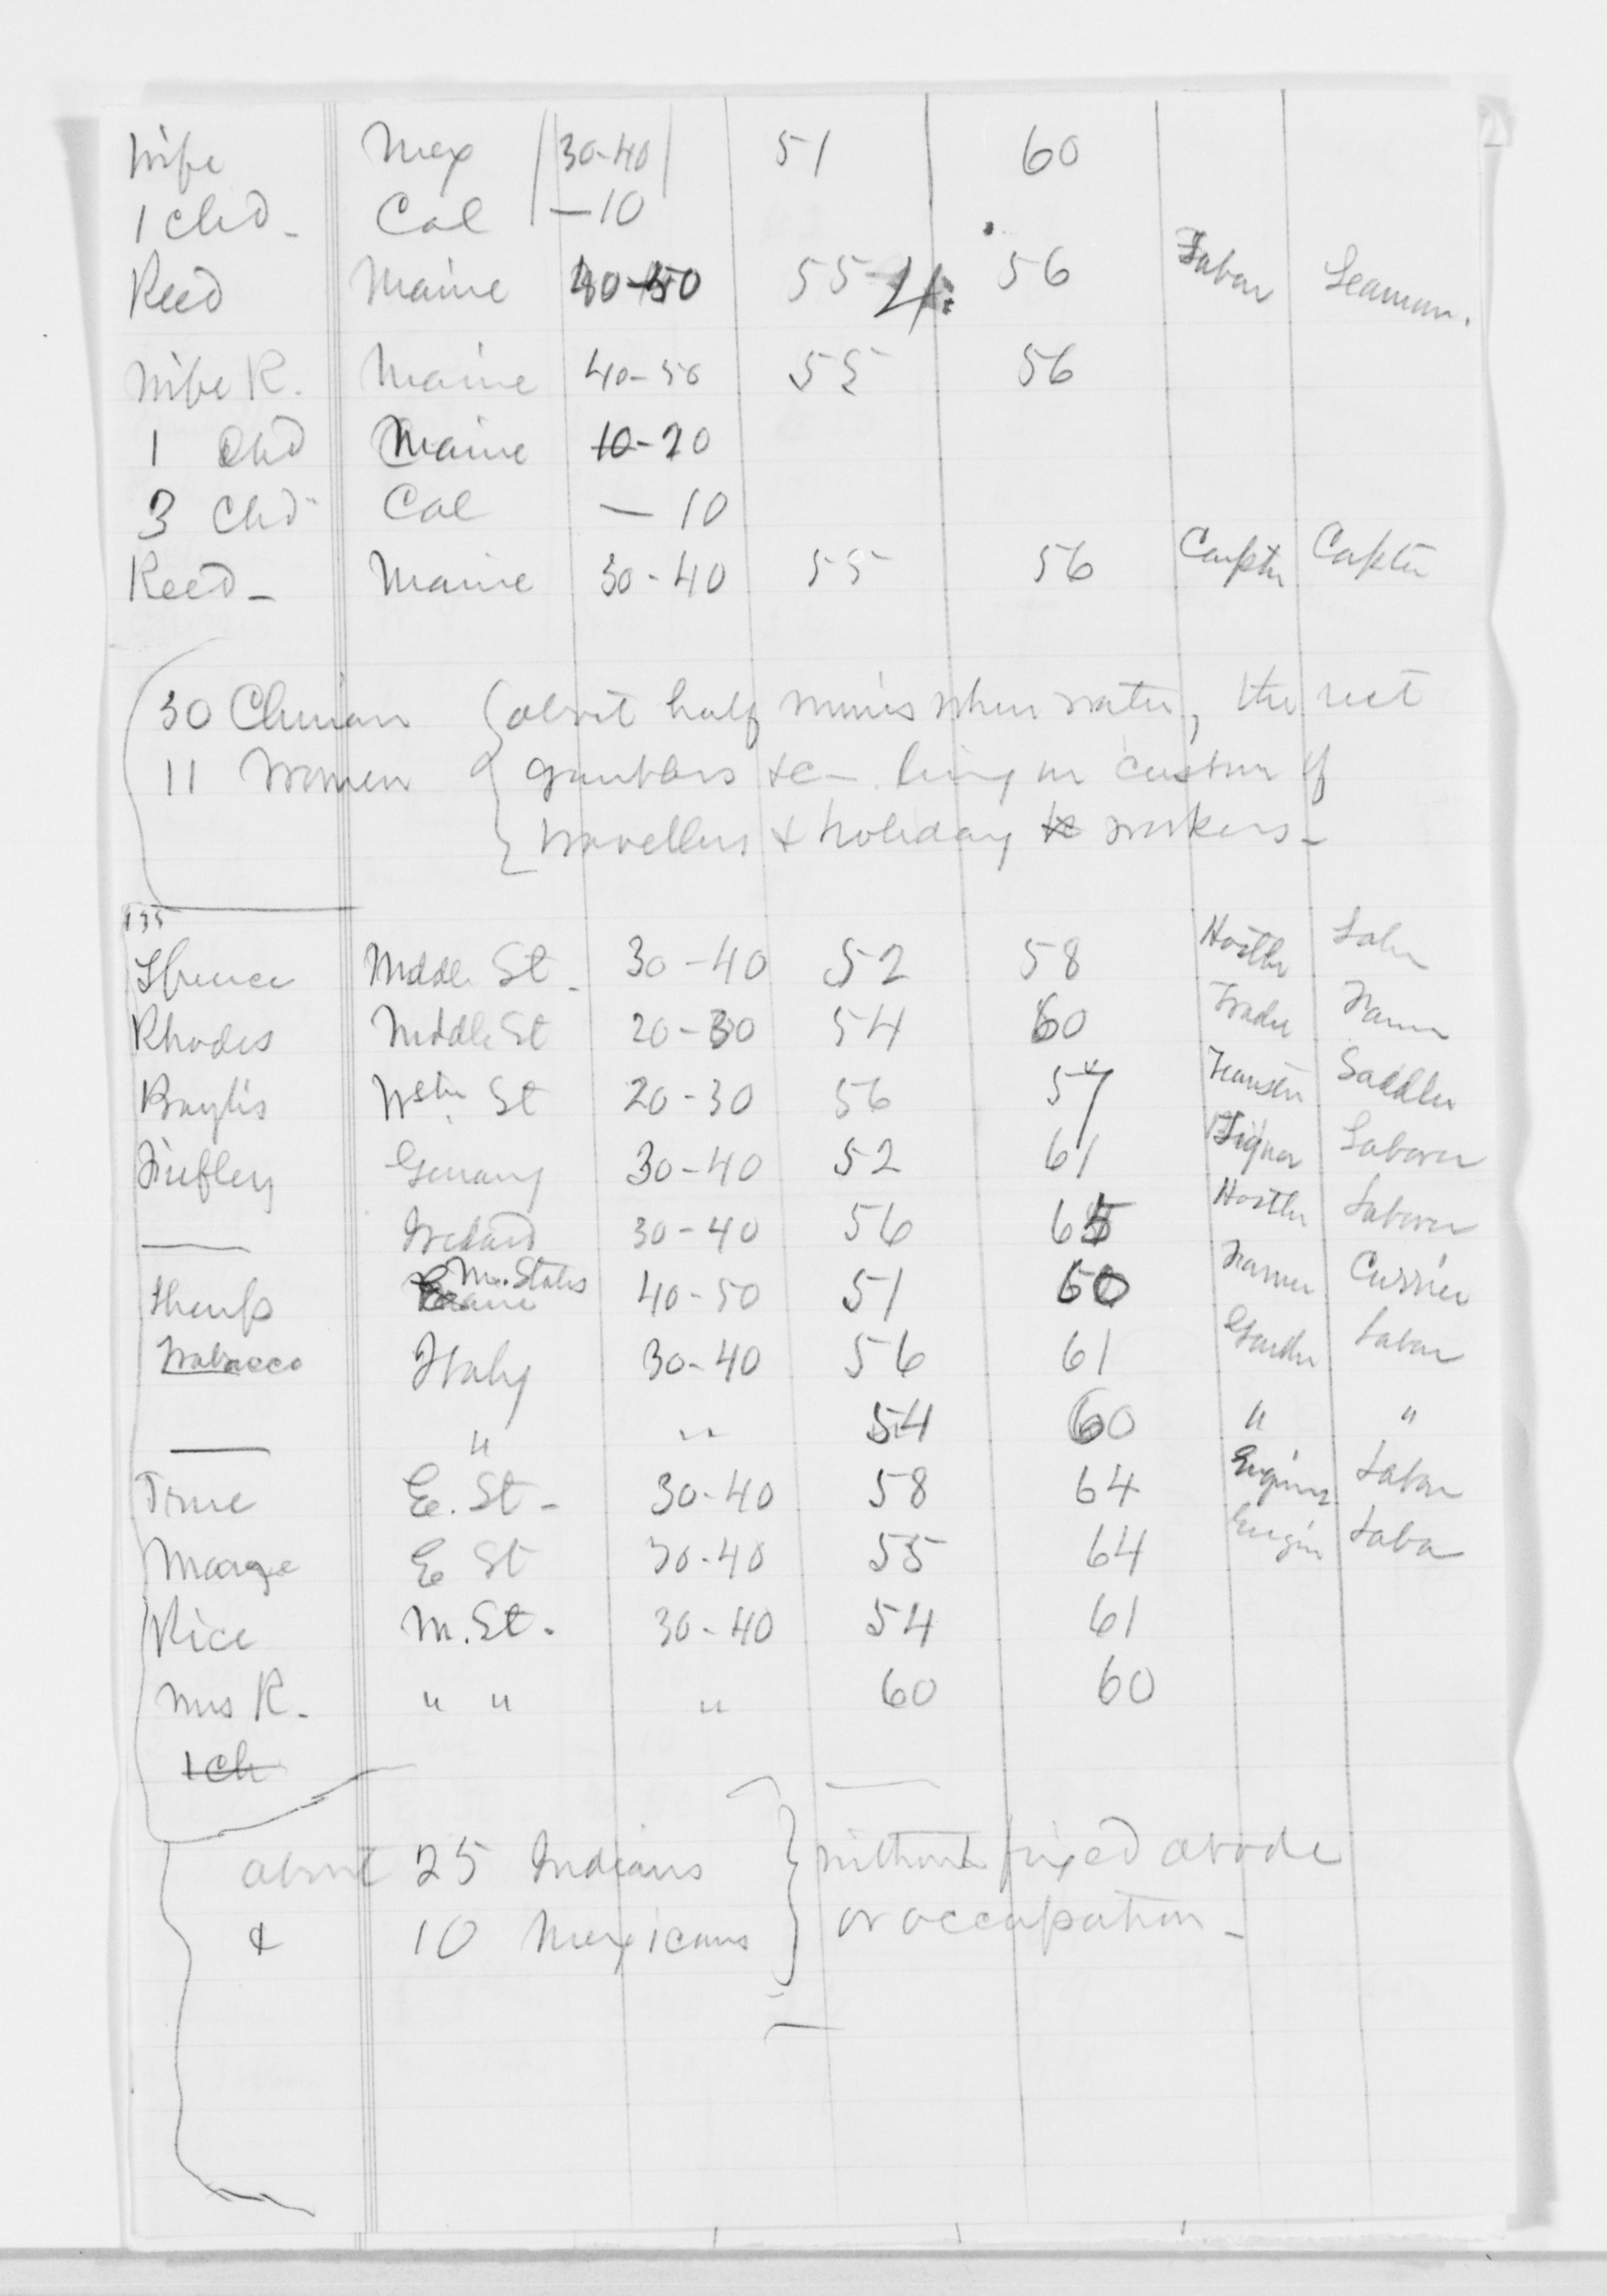 Wife Mex 30-40 51 60
1 Chd - Cal - 10
Reed Maine 40-50 55 56 Labor Seaman.
Wife R. Maine 40-50 55 56
1 Chd Maine 10-20
3 Chd Cal - 10
Reed - Maine 30-40 55 56 Carptr Carptr
30 Chinese about half mines when water, the rest
11 Women gamblers &c - living on custom of
travellers & holiday workers -
135
Spence Middle St - 30-40 52 58 Hostler Labr
Rhodes Middle St 20-30 54 60 Trader Farmr
Baylis Wstn St 20-30 56 57 Teamstr Saddler
Germany 30-40 52 61 Liquor Laborer
— Ireland 30-40 56 65 Hostler Laborer
M. States 40-50 51 60 Farmer Currier
Italy 30-40 56 61 Gardnr Labor
— " " 54 60 " "
True E. St - 30-40 58 64 Engineer Labor
E St 30-40 55 64 Engin Labor
Rice M. St. 30-40 54 61
Mrs R. " " " 60 60
1 Ch
about 25 Indians without fixed abode
& 10 Mexicans or occupation -